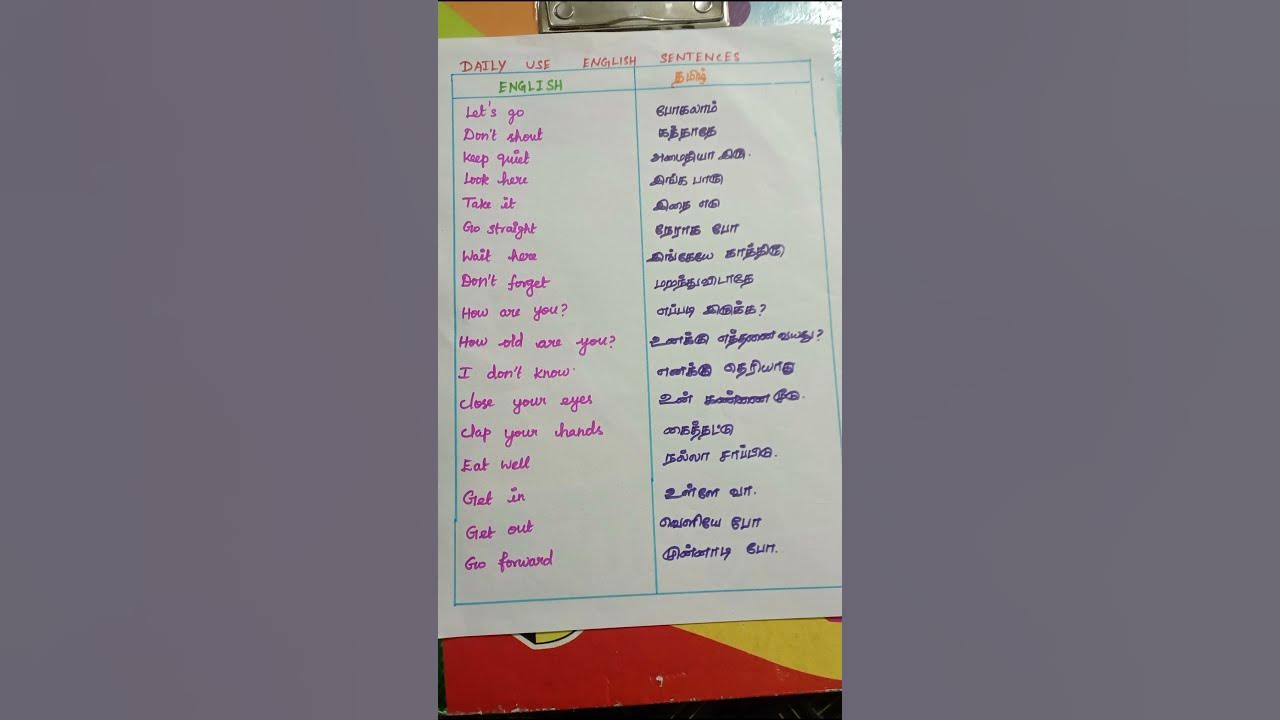 DAILY USE ENGLISH SENTENCES
ENGLISH தமிழ்
Let's go போகலாம்
Don't shout கத்தாதே
Keep quiet அமைதியா இரு.
Look here இங்க பாரு
Take it இதை எடு
Go straight நேராக போ
Wait here இங்கேயே காத்திரு
Don't forget மறந்துவிடாதே
How are you? எப்படி இருக்க?
How old are you? உனக்கு எத்தணை வயது?
I don't know. எனக்கு தெரியாது
Close your eyes உன் கண்ணை மூடு.
Clap your hands கைத்தட்டு
Eat well நல்லா சாப்பிடு.
Get in உள்ளே வா.
Get out வெளியே போ
Go forward முன்னாடி போ.